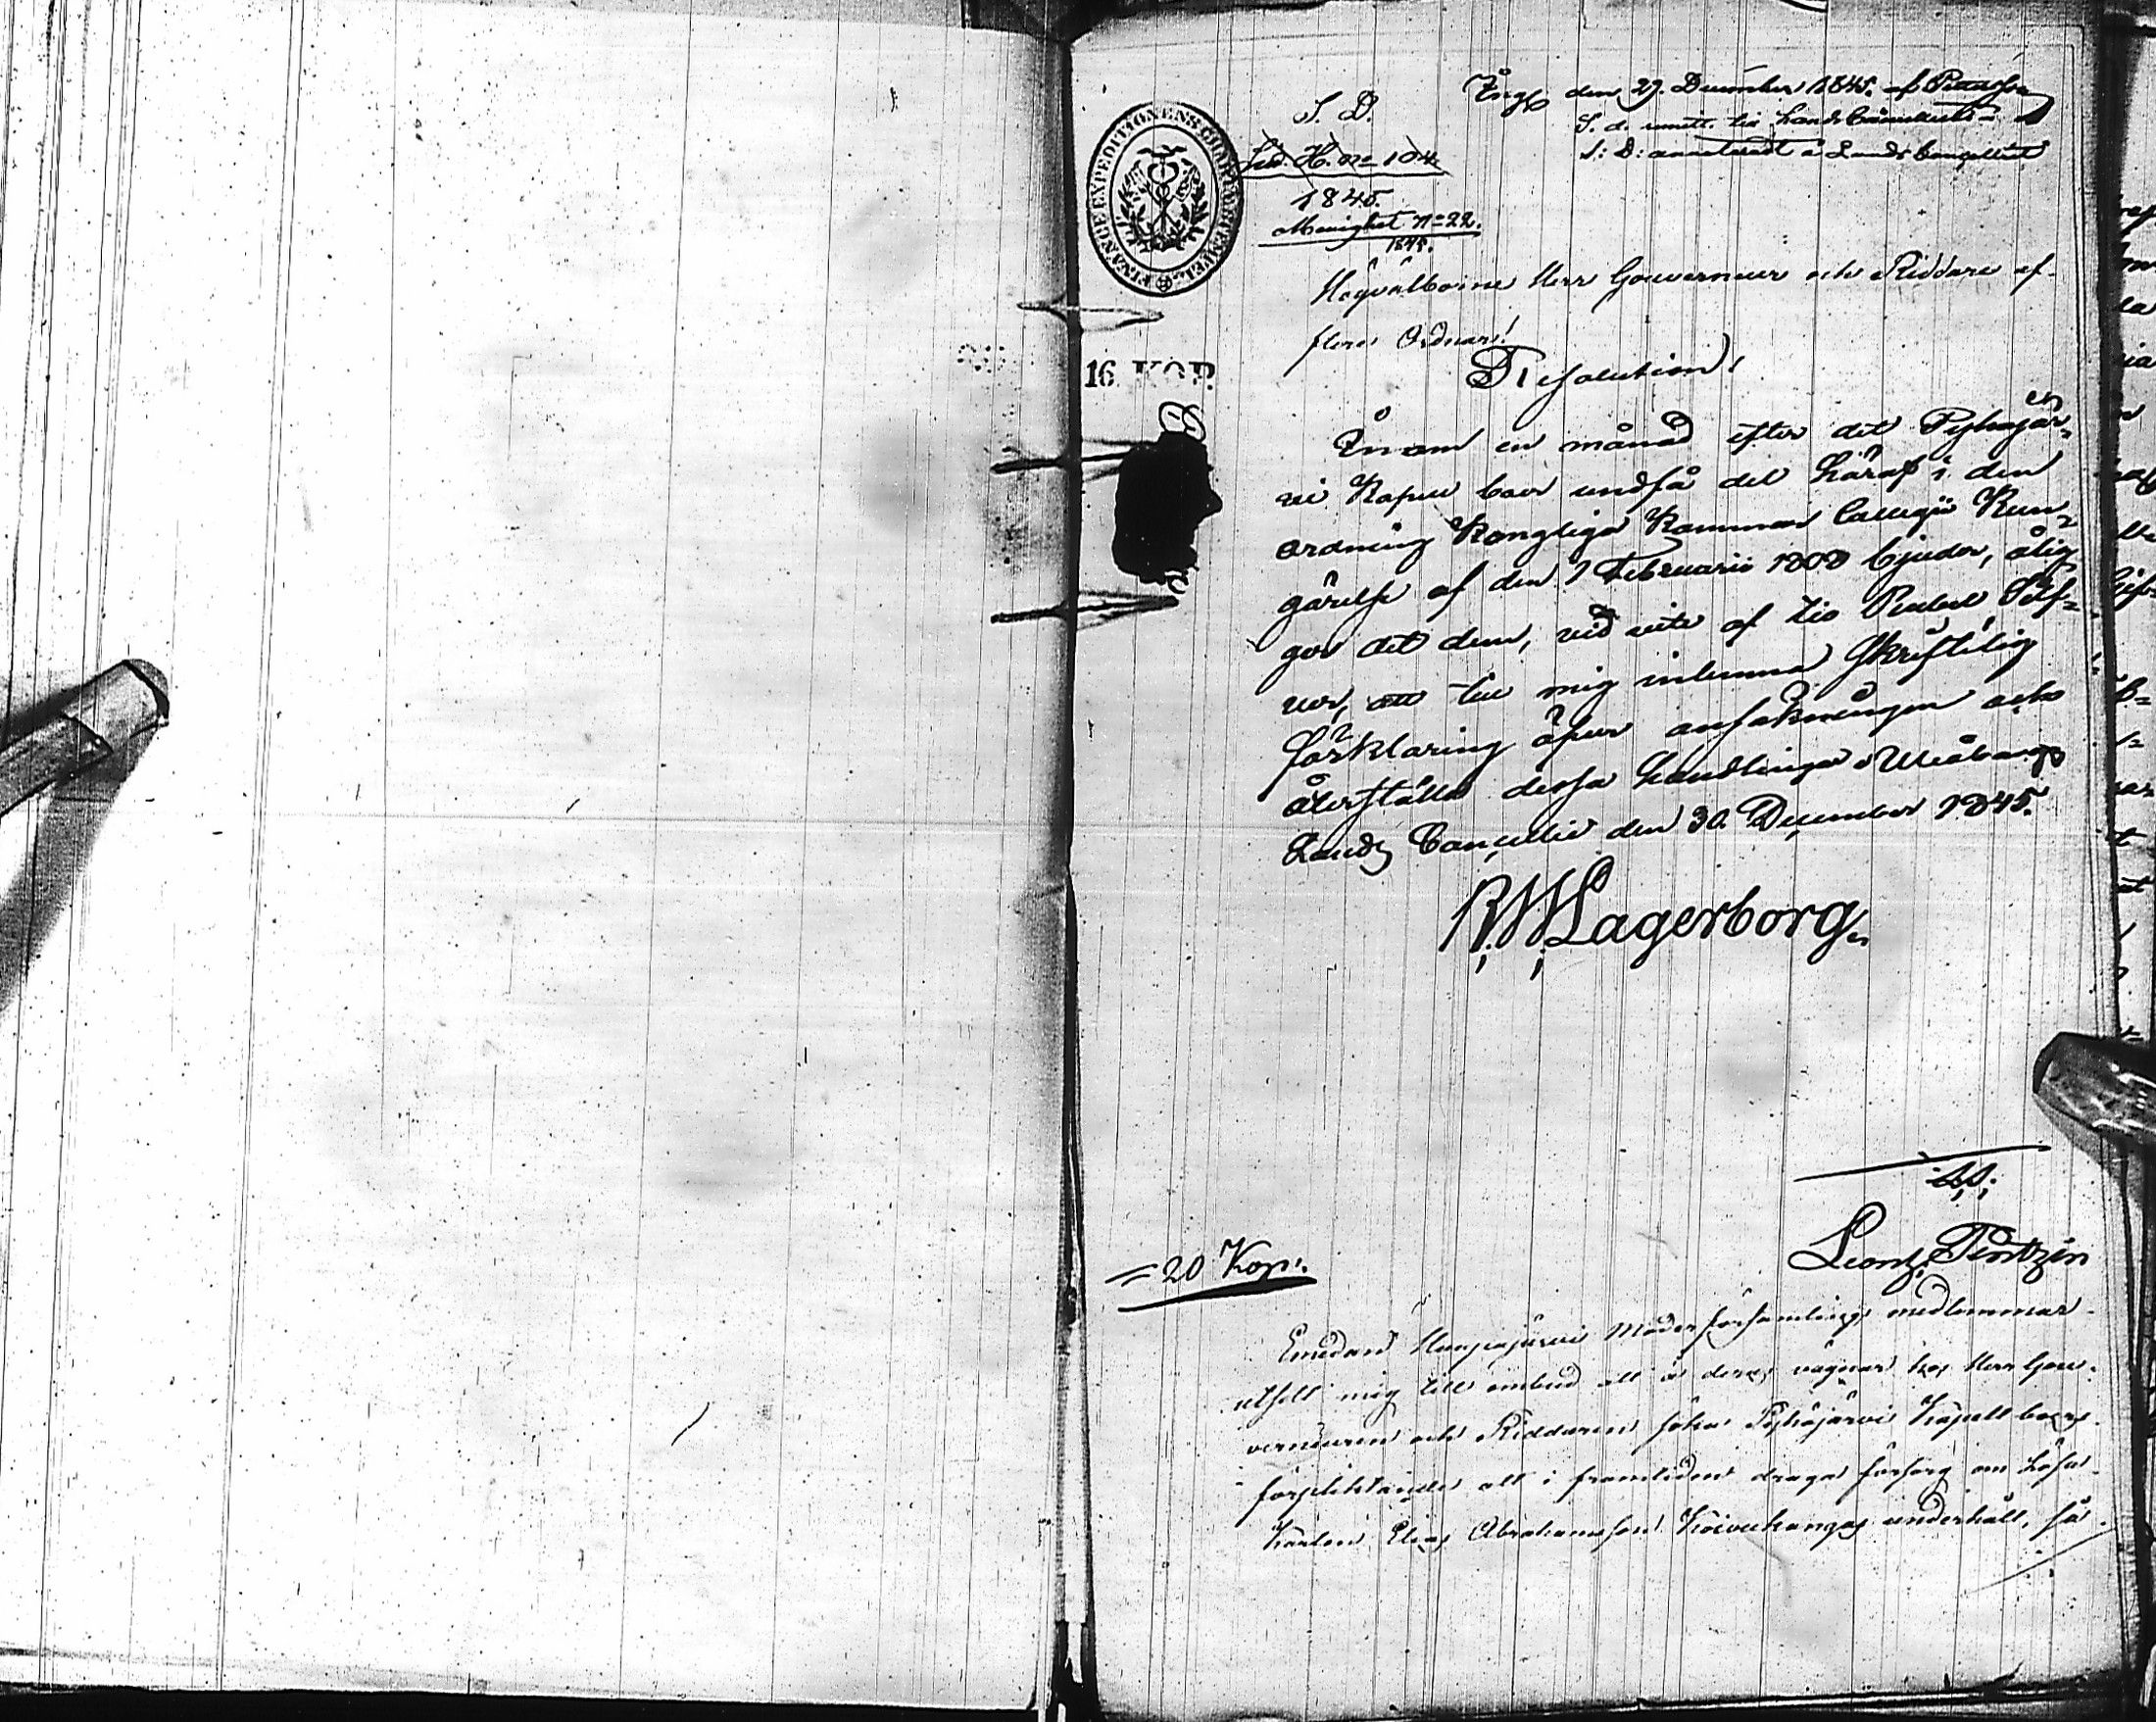 Ingk den 29. December 1845. af
S. d. remitt. till Landskammaren
S: D: annoteradt å Lands Cancelliet
S. D.
Lit. H. No 104
1845.
Menighet No 22.
1845.
FINANCE EXPEDITIONENS CHARTÆ STEMPEL
Högvälborne Herr Gouverneur och Riddare af
flere Ordnar!
16 KOP.
Resolution,
Inom en månad efter det Pyhäjär-
vi Kapell boer undfå del häraf i den
ordning Kongliga Kammar Collegii Kun-
görelse af den 1 Februarii 1808 bjuder, ålig
ger det dem, vid vite af tio Rubel Silf-
ver, att till mig inlemna skriftelig
förklaring öfver ansökningen och
återställa dessa handlingar. Uleåborgs
Lands Cancellie den 30. December 1845.
R. W. Lagerborg.
Leonh. Pentzin
= 20 Kop:
Emedan Haapajärvi Moderförsamlings medlemmar
utsett mig till ombud att å deras vägnar hos Herr Gou-
verneuren och Riddaren söka Pyhäjärvi Kapell boers
förpliktande att i framtiden draga försorg om Lösa
Karlen Elias Abrahamsson Koivukangas underhåll, få